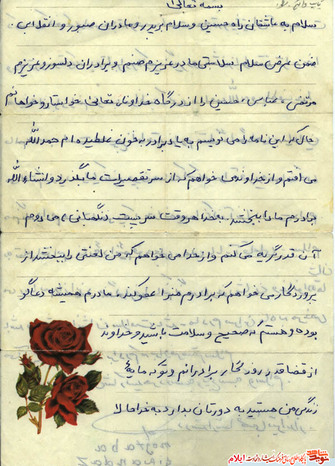 بسمه تعالی
سلام به عاشقان راه حسین و سلام بر پدر و مادران صبور و انقلاب
ضمن عرض سلام سلامتی مادر عزیزم صنم و برادران دلسوز و عزیزم
مرتضی، عباس، حسین را از درگاه خداوند تعالی خواستار و خواهانم
حال که این نامه را می نویسم به یاد برادر به خون غلطیده ام حمدالله
می افتم و از خداوند می خواهم که از سر تقصیرات ما بگذرد و انشاءالله
برادرم ما را ببخشد. بخدا هر وقت سر پست نگهبانی می روم
آن قدر گریه می کنم و از خدا می خواهم که من لعنتی را ببخشد از
پروردگار می خواهم که برادرم مرا عفو کند، مادرم همیشه دعاگو
بوده و هستم که صحیح و سلامت باشید و خداوند
از قضا قدر روزگار برادرانم و که مایهٔ
زندگی من هستید به دورتان بدارد به خدا حالا
ایلام